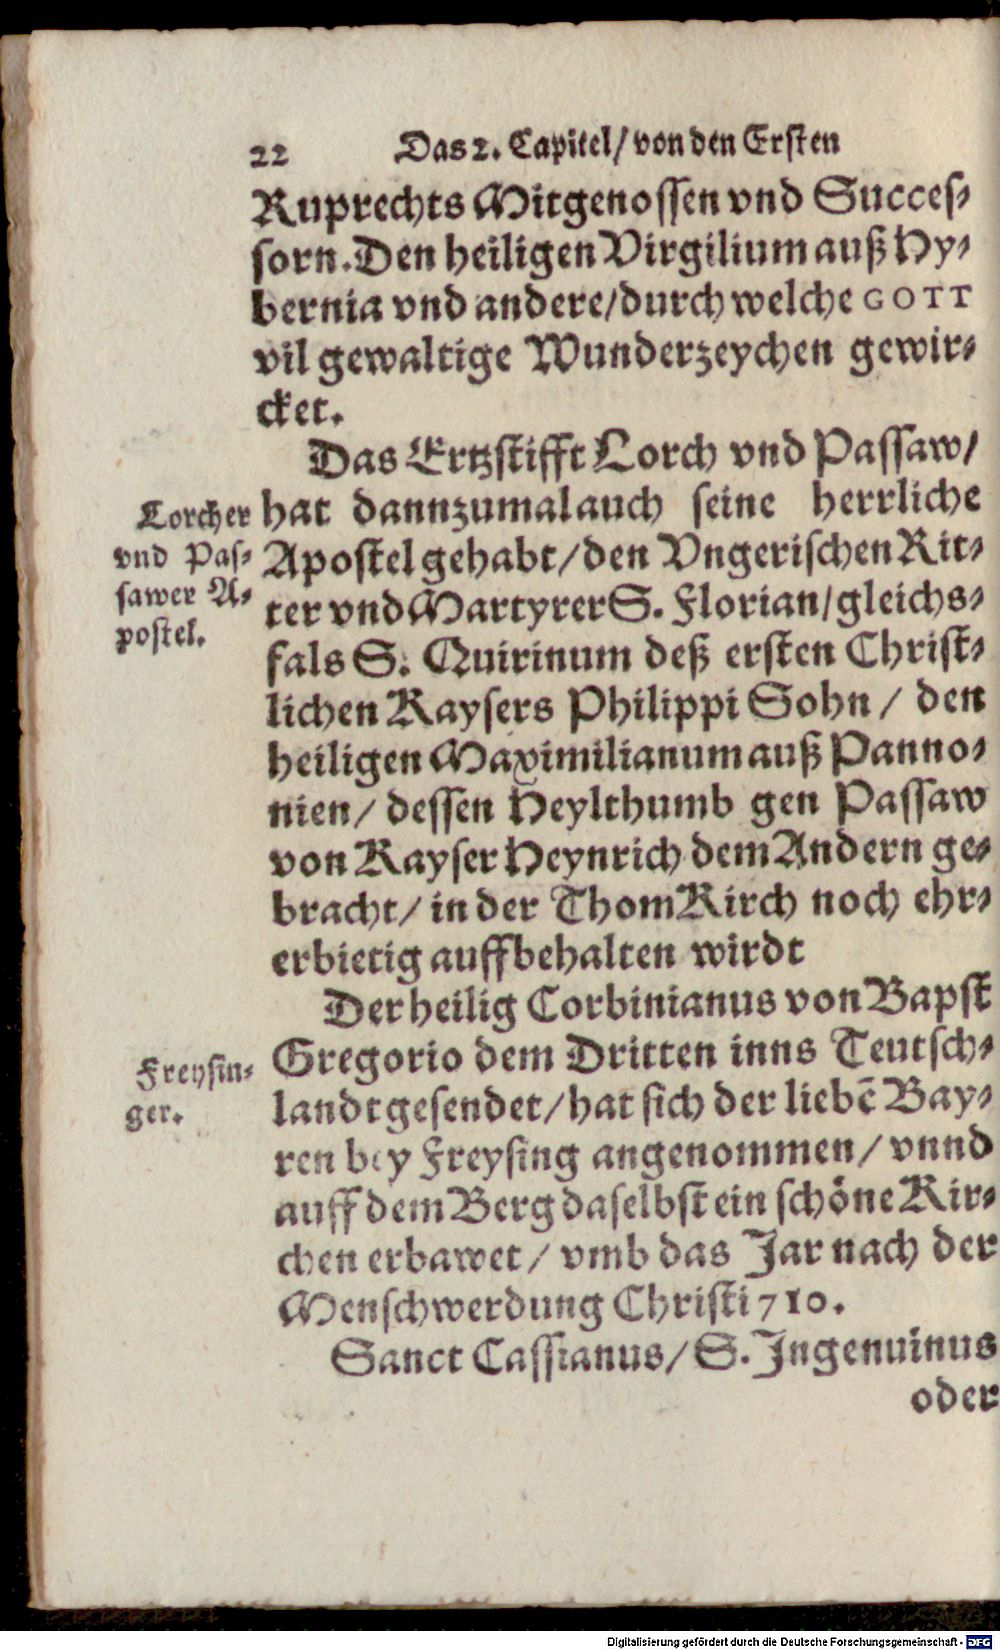 22 Das 2. Capitel/ von den Ersten
Ruprechts Mitgenossen vnd Succes⸗
sorn. Den heiligen Virgilium auß Hy⸗
bernia vnd andere/ durch welche GOTT
vil gewaltige Wunderzeychen gewir⸗
cket.
Das Ertzstifft Lorch vnd Passaw/
Lorcher
vnd Pas⸗
sawer A⸗
postel.
hat dannzumal auch seine herrliche
Apostel gehabt/ den Vngerischen Rit⸗
ter vnd Martyrer S. Florian/ gleichs⸗
fals S. Quirinum deß ersten Christ⸗
lichen Kaysers Philippi Sohn/ den
heiligen Maximilianum auß Panno⸗
nien/ dessen Heylthumb gen Passaw
von Kayser Heynrich dem Andern ge⸗
bracht/ in der ThomKirch noch ehr⸗
erbietig auffbehalten wirdt
Der heilig Corbinianus von Bapst
Freysin⸗
ger.
Gregorio dem Dritten inns Teutsch⸗
landt gesendet/ hat sich der liebẽ Bay⸗
ren bey Freysing angenommen/ vnnd
auff dem Berg daselbst ein schöne Kir⸗
chen erbawet/ vmb das Jar nach der
Menschwerdung Christi 710.
Sanct Cassianus/ S. Ingenuinus
oder
Digitalisierung gefördert durch die Deutsche Forschungsgemeinschaft - DFG